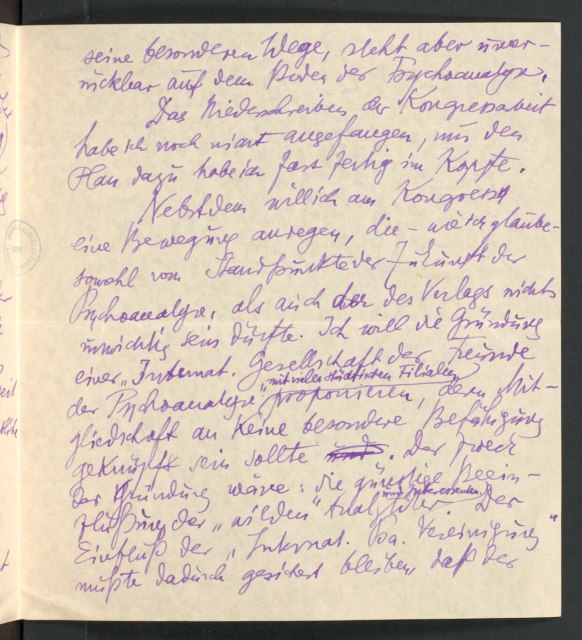 seine besonderen Wege, steht aber unver-
rückbar auf dem Boden der Psychoanalyse.
Das Niederschreiben der Kongressarbeit
habe ich noch nicht angefangen, nur den
Plan dazu habe ich fast fertig im Kopfe.
Nebstdem will ich am Kongress
eine Bewegung anregen, die - wie ich glaube -
sowohl vom Standpunkte der Zukunft der
Psychoanalyse, als auch des Verlags nicht
unwichtig sein dürfte. Ich will die Gründung
einer „Internat. Gesellschaft der Freunde
der Psychoanalyse" „mit vielen städtischen Filialen"
proponieren, deren Mit-
gliedschaft an keine besondere Befähigung
geknüpft sein sollte. Der Zweck
der Gründung wäre: die günstige Beein-
flußung der „wilden" Analytiker
und Interessenten. Der
Einfluß der „Internat. Psa. Vereinigung"
müßte dadurch gesichert bleiben, daß der